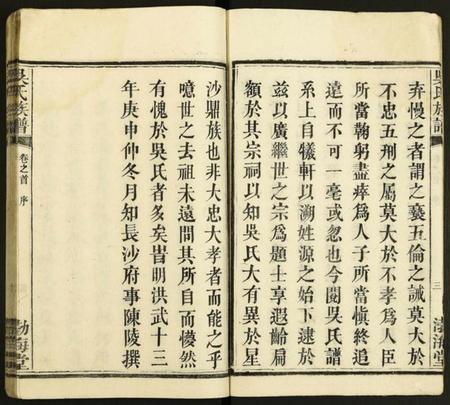 吳氏族譜
三
渤海堂
弃慢之者謂之褻五倫之誡莫大於
不忠五刑之屬莫大於不孝爲人臣
所當鞠躬盡瘁爲人子所當愼終追
遠而不可一毫或忽也今閱吳氏譜
系上自犧軒以溯姓源之始下逮於
茲以廣繼世之宗爲題士享遐齡扁
額於其宗祠以知吳氏大有異於星
沙鼎族也非大忠大孝者而能之乎
噫世之去祖未遠間其所自而懓然
有愧於吳氏者多矣皆明洪武十三
年庚申仲冬月知長沙府事陳陵撰
吳氏族譜
卷之首 序
渤海堂